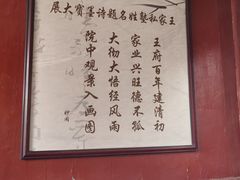 王家私塾姓名題詩墨寶大展
王府百年建清初
家业兴旺德不孤
大彻大悟经风雨
院中观景入画图